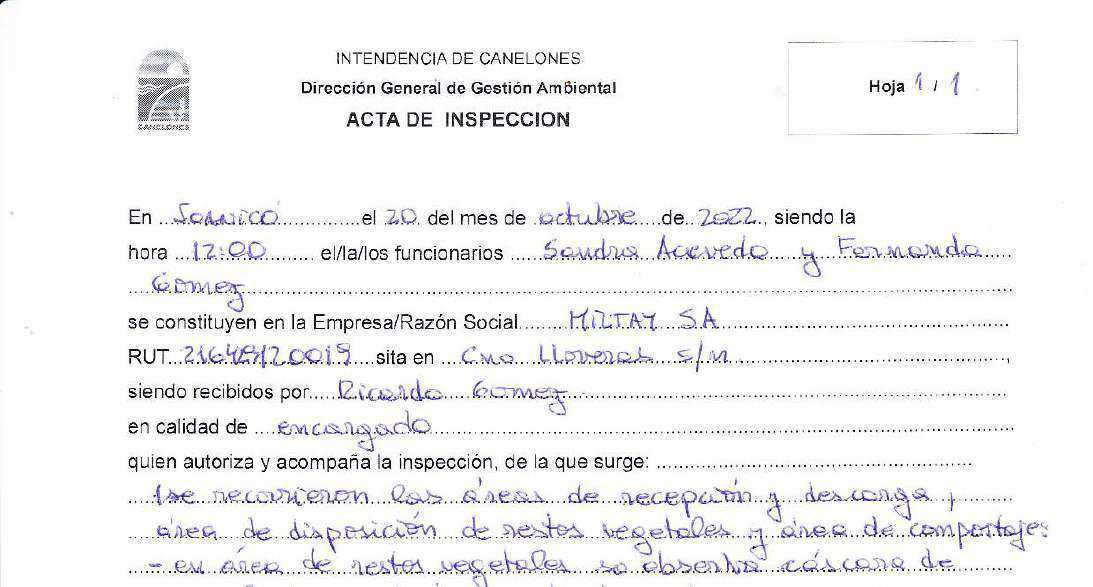 INTENDENCIA DE CANELONES
Dirección General de Gestión Ambiental
ACTA DE INSPECCION
Hoja 1 / 1
CANELONES
En Joanicó el 20 del mes de octubre de 2022, siendo la
hora 12:00 el/la/los funcionarios Sandra Acevedo y Fernando
Gomez
se constituyen en la Empresa/Razón Social MILTAY SA
RUT sita en Cno Lloveras s/n,
siendo recibidos por Ricardo Gomez
en calidad de encargado
quien autoriza y acompaña la inspección, de la que surge:
se recorrieron las áreas de recepción y descarga,
área de disposición de restos vegetales y área de compostaje:
- en área de restos vegetales se observa cáscara de